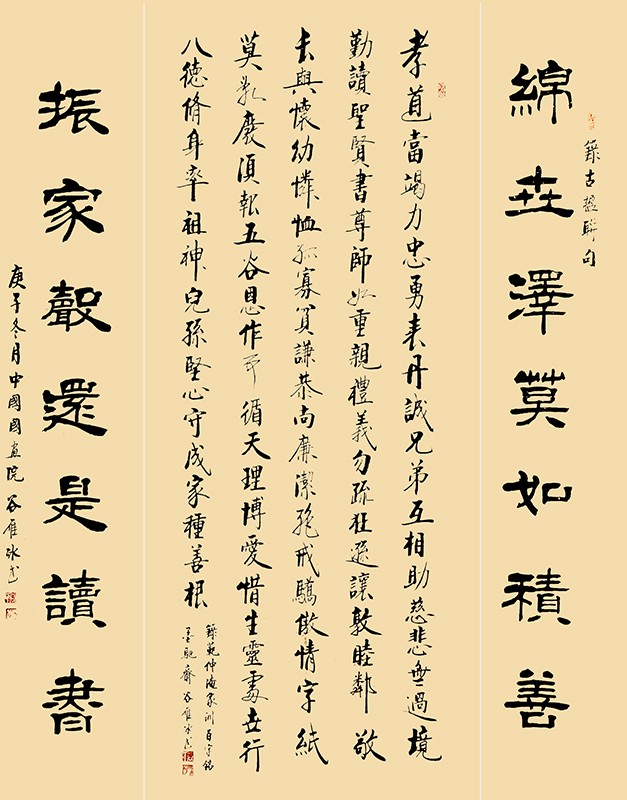 錄古楹聯句
綿世澤莫如積善
孝道當竭力忠勇表丹誠兄弟互相助慈悲無過境
勤讀聖賢書尊師如重親禮義勿疏狂遜讓敦睦鄰敬
長與懷幼憐恤孤寡貧謙恭尚廉潔絕戒驕傲情字紙
莫亂廢須報五谷恩作事循天理博愛惜生靈處世行
八德脩身率祖神兒孫堅心守成家種善根
錄范仲淹家訓百字銘
墨馳齋谷雁冰書
振家聲還是讀書
庚子冬月中國國畫院谷雁冰書